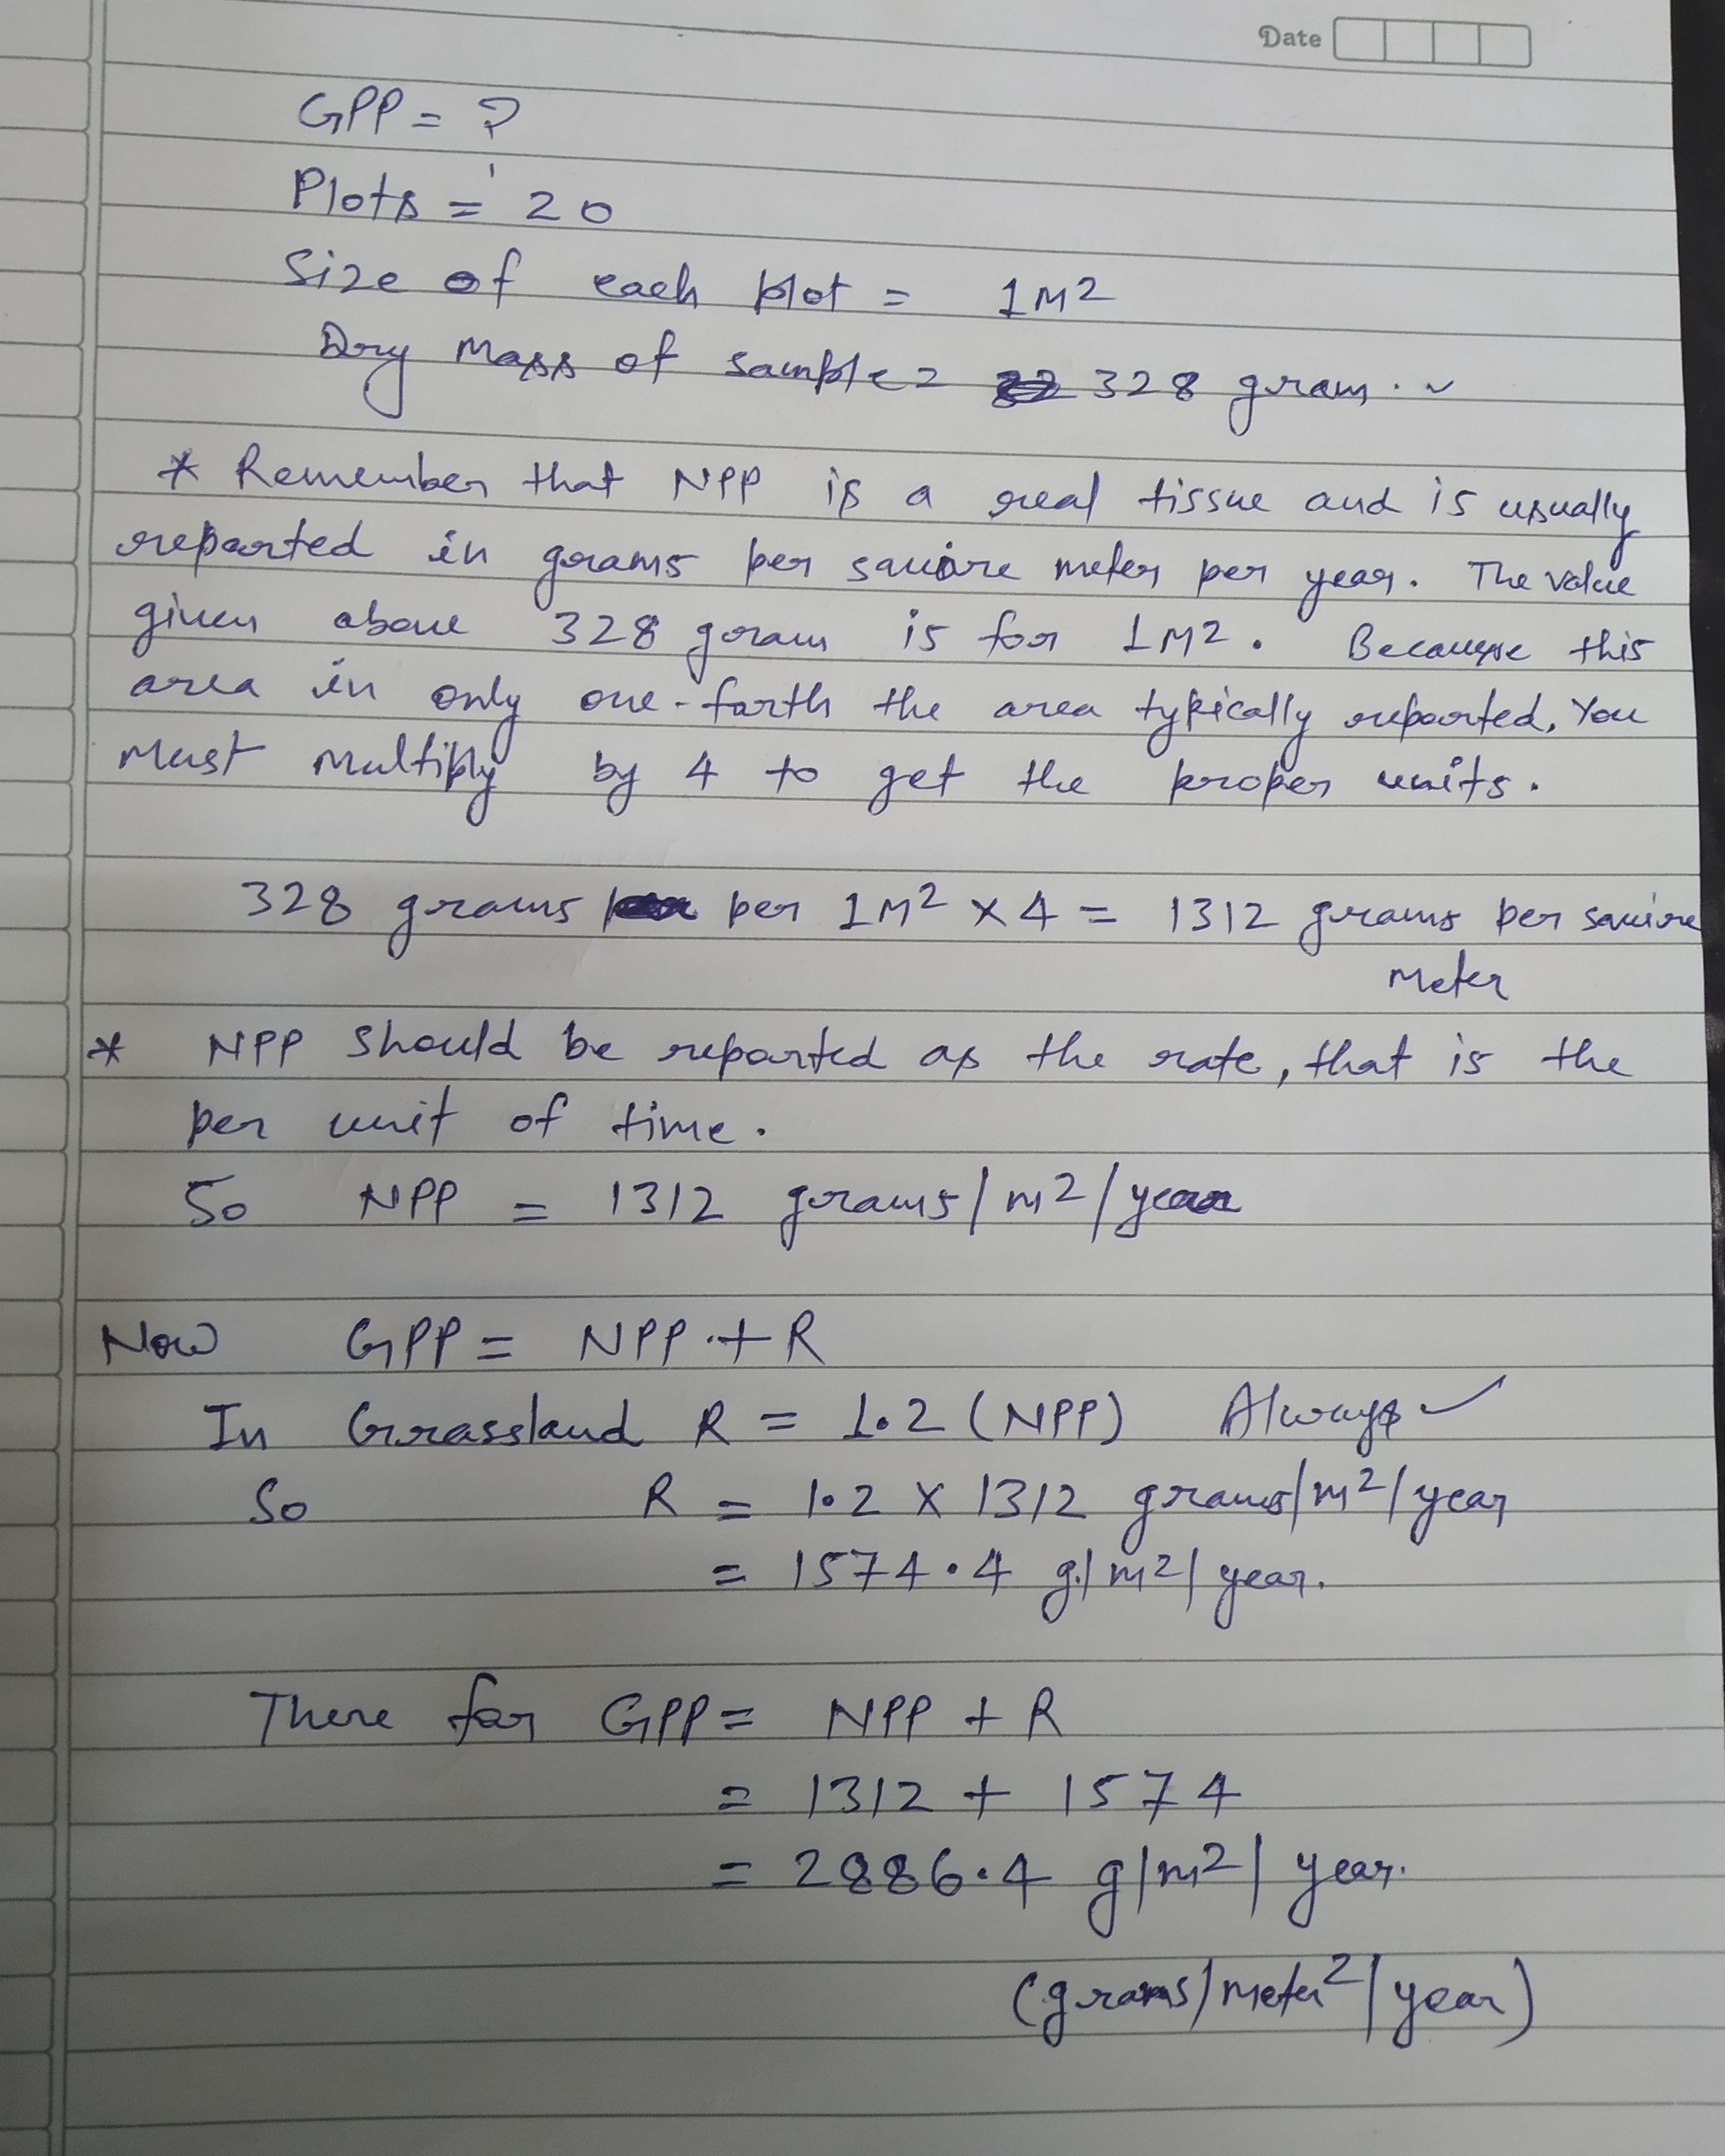 Date
GPP = ?
Plots = 20
Size of each plot = 1M²
Dry Mass of sample = 328 gram.
* Remember that NPP is a real tissue and is usually
reported in grams per squire meter per year. The value
given above 328 gram is for 1M². Because this
area in only one-forth the area typically reported. You
Must Multiply by 4 to get the proper units.
328 grams per 1M² x 4 = 1312 grams per squire
Meter
* NPP should be reported as the rate, that is the
per unit of time.
So NPP = 1312 grams/m²/year
Now GPP = NPP + R
In Grassland R = 1.2 (NPP) Always ✓
So R = 1.2 x 1312 grams/m²/year
= 1574.4 g/m²/year.
There for GPP = NPP + R
= 1312 + 1574
= 2886.4 g/m²/year.
(grams/meter²/year)